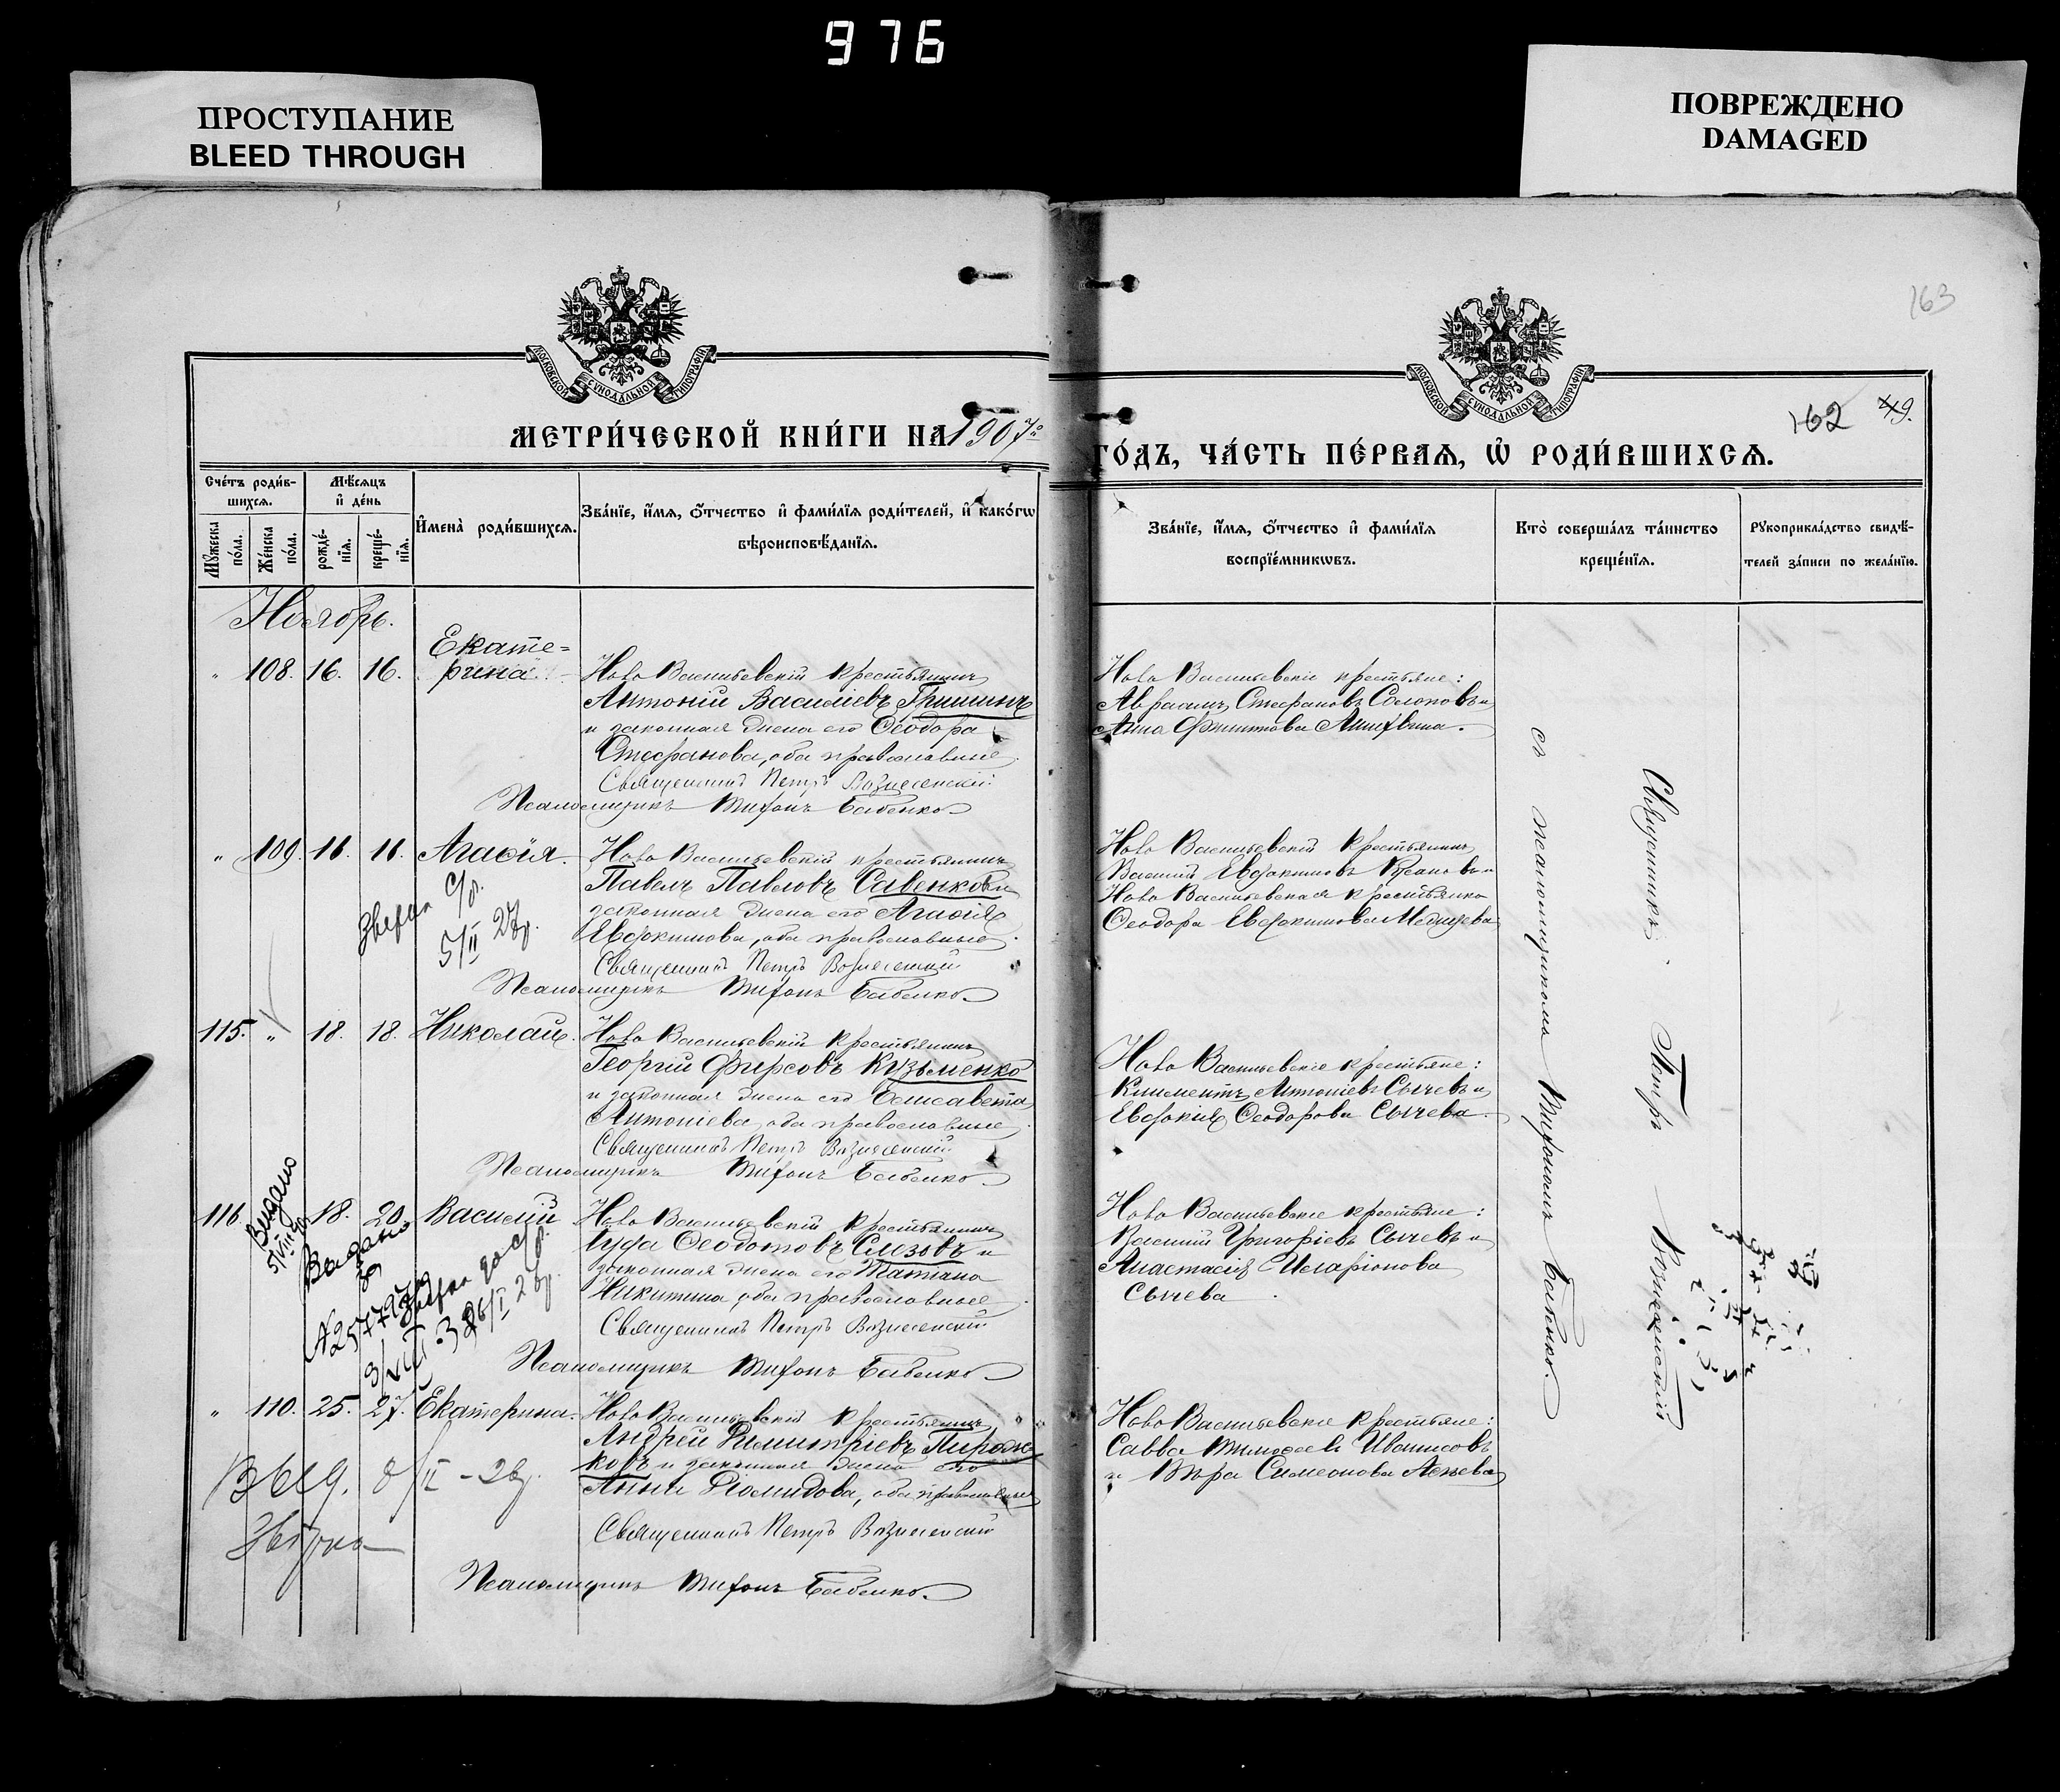 976
ПРОСТУПАНИЕ
BLEED THROUGH
ПОВРЕЖДЕНО
DAMAGED
163
МОСКОВСКОЙ СѴНОДАЛЬНОЙ ТИПОГРАФІИ
МОСКОВСКОЙ СѴНОДАЛЬНОЙ ТИПОГРАФІИ
162 49.
МЕТРИ́ЧЕСКОЙ КНИ́ГИ НА 1907 го
ГО́ДЪ, ЧА́СТЬ ПЕ́РВАѦ, Ѡ҆ РОДИ́ВШИХСѦ.
Сче́тъ роди́в-
шихсѧ.
Мꙋ́жеска по́ла.
Же́нска по́ла.
Мѣ́сѧцъ
и҆ де́нь
рожде́-нїѧ.
креще́-нїѧ.
И҆мена̀ роди́вшихсѧ.
Зва́нїе, и҆́мѧ, ѻ҆́тчество и҆ фами́лїѧ роди́телей, и҆ како́гѡ
вѣроисповѣ́данїѧ.
Зва́нїе, и҆́мѧ, ѻ҆́тчество и҆ фами́лїѧ
воспрїе́мникѡвъ.
Кто̀ соверша́лъ та́инство
креще́нїѧ.
Рꙋкоприкла́дство свидѣ́-
телей за́писи по жела́нїю.
Ноябрь.
" 108. 16. 16. Екате=
рина
Ново Васильевскій крестьянинъ
Антоній Василіевъ Гришинъ
и законная жена его Ѳеодора
Стефанова, оба православные.
Священникъ Петръ Вознесенскій
Псаломщикъ Тихонъ Бабенко
Ново Васильевскіе крестьяне:
Авраамъ Стефановъ Солоповъ и
Анна Филиппова Анихвина.
" 109. 16. 16. Агаѳія.
Ново Васильевскій крестьянинъ
Павелъ Павловъ Савенковъ и
законная жена его Агаѳія
Евдокимова, оба православные.
Священникъ Петръ Вознесенскій
Псаломщикъ Тихонъ Бабенко
Ново Васильевскій крестьянинъ
Василій Евдокимовъ
Ново Васильевская крестьянка
Ѳеодора Евдокимова
5/II 28г.
115. " 18. 18. Николай.
Ново Васильевскій крестьянинъ
Георгій Фирсовъ Кузьменко
и законная жена его Елисавета
Антоніева, оба православные.
Священникъ Петръ Вознесенскій
Псаломщикъ Тихонъ Бабенко
Ново Васильевскіе крестьяне:
Климентъ Антоніевъ Сычевъ и
Евдокія Ѳеодорова Сычева.
116. 18. 20. Василій
Ново Васильевскій крестьянинъ
Іуда Ѳеодотовъ Слизовъ и
законная жена его Татіана
Никитина, оба православные.
Священникъ Петръ Вознесенскій
Псаломщикъ Тихонъ Бабенко
Ново Васильевскіе крестьяне:
Василій Григоріевъ Сычевъ и
Анастасія Иларіонова
Сычева
Выдано
Выдано
" 110. 25. 27. Екатерина.
Ново Васильевскій крестьянинъ
Андрей Димитріевъ Пирож-
ковъ и законная жена его
Анна Діомидова, оба православные
Священникъ Петръ Вознесенскій
Псаломщикъ Тихонъ Бабенко
Ново Васильевскіе крестьяне:
Савва Тимоѳеевъ
и Вѣра Симеонова
Священникъ Петръ Вознесенскій
съ псаломщикомъ Тихономъ Бабенко.